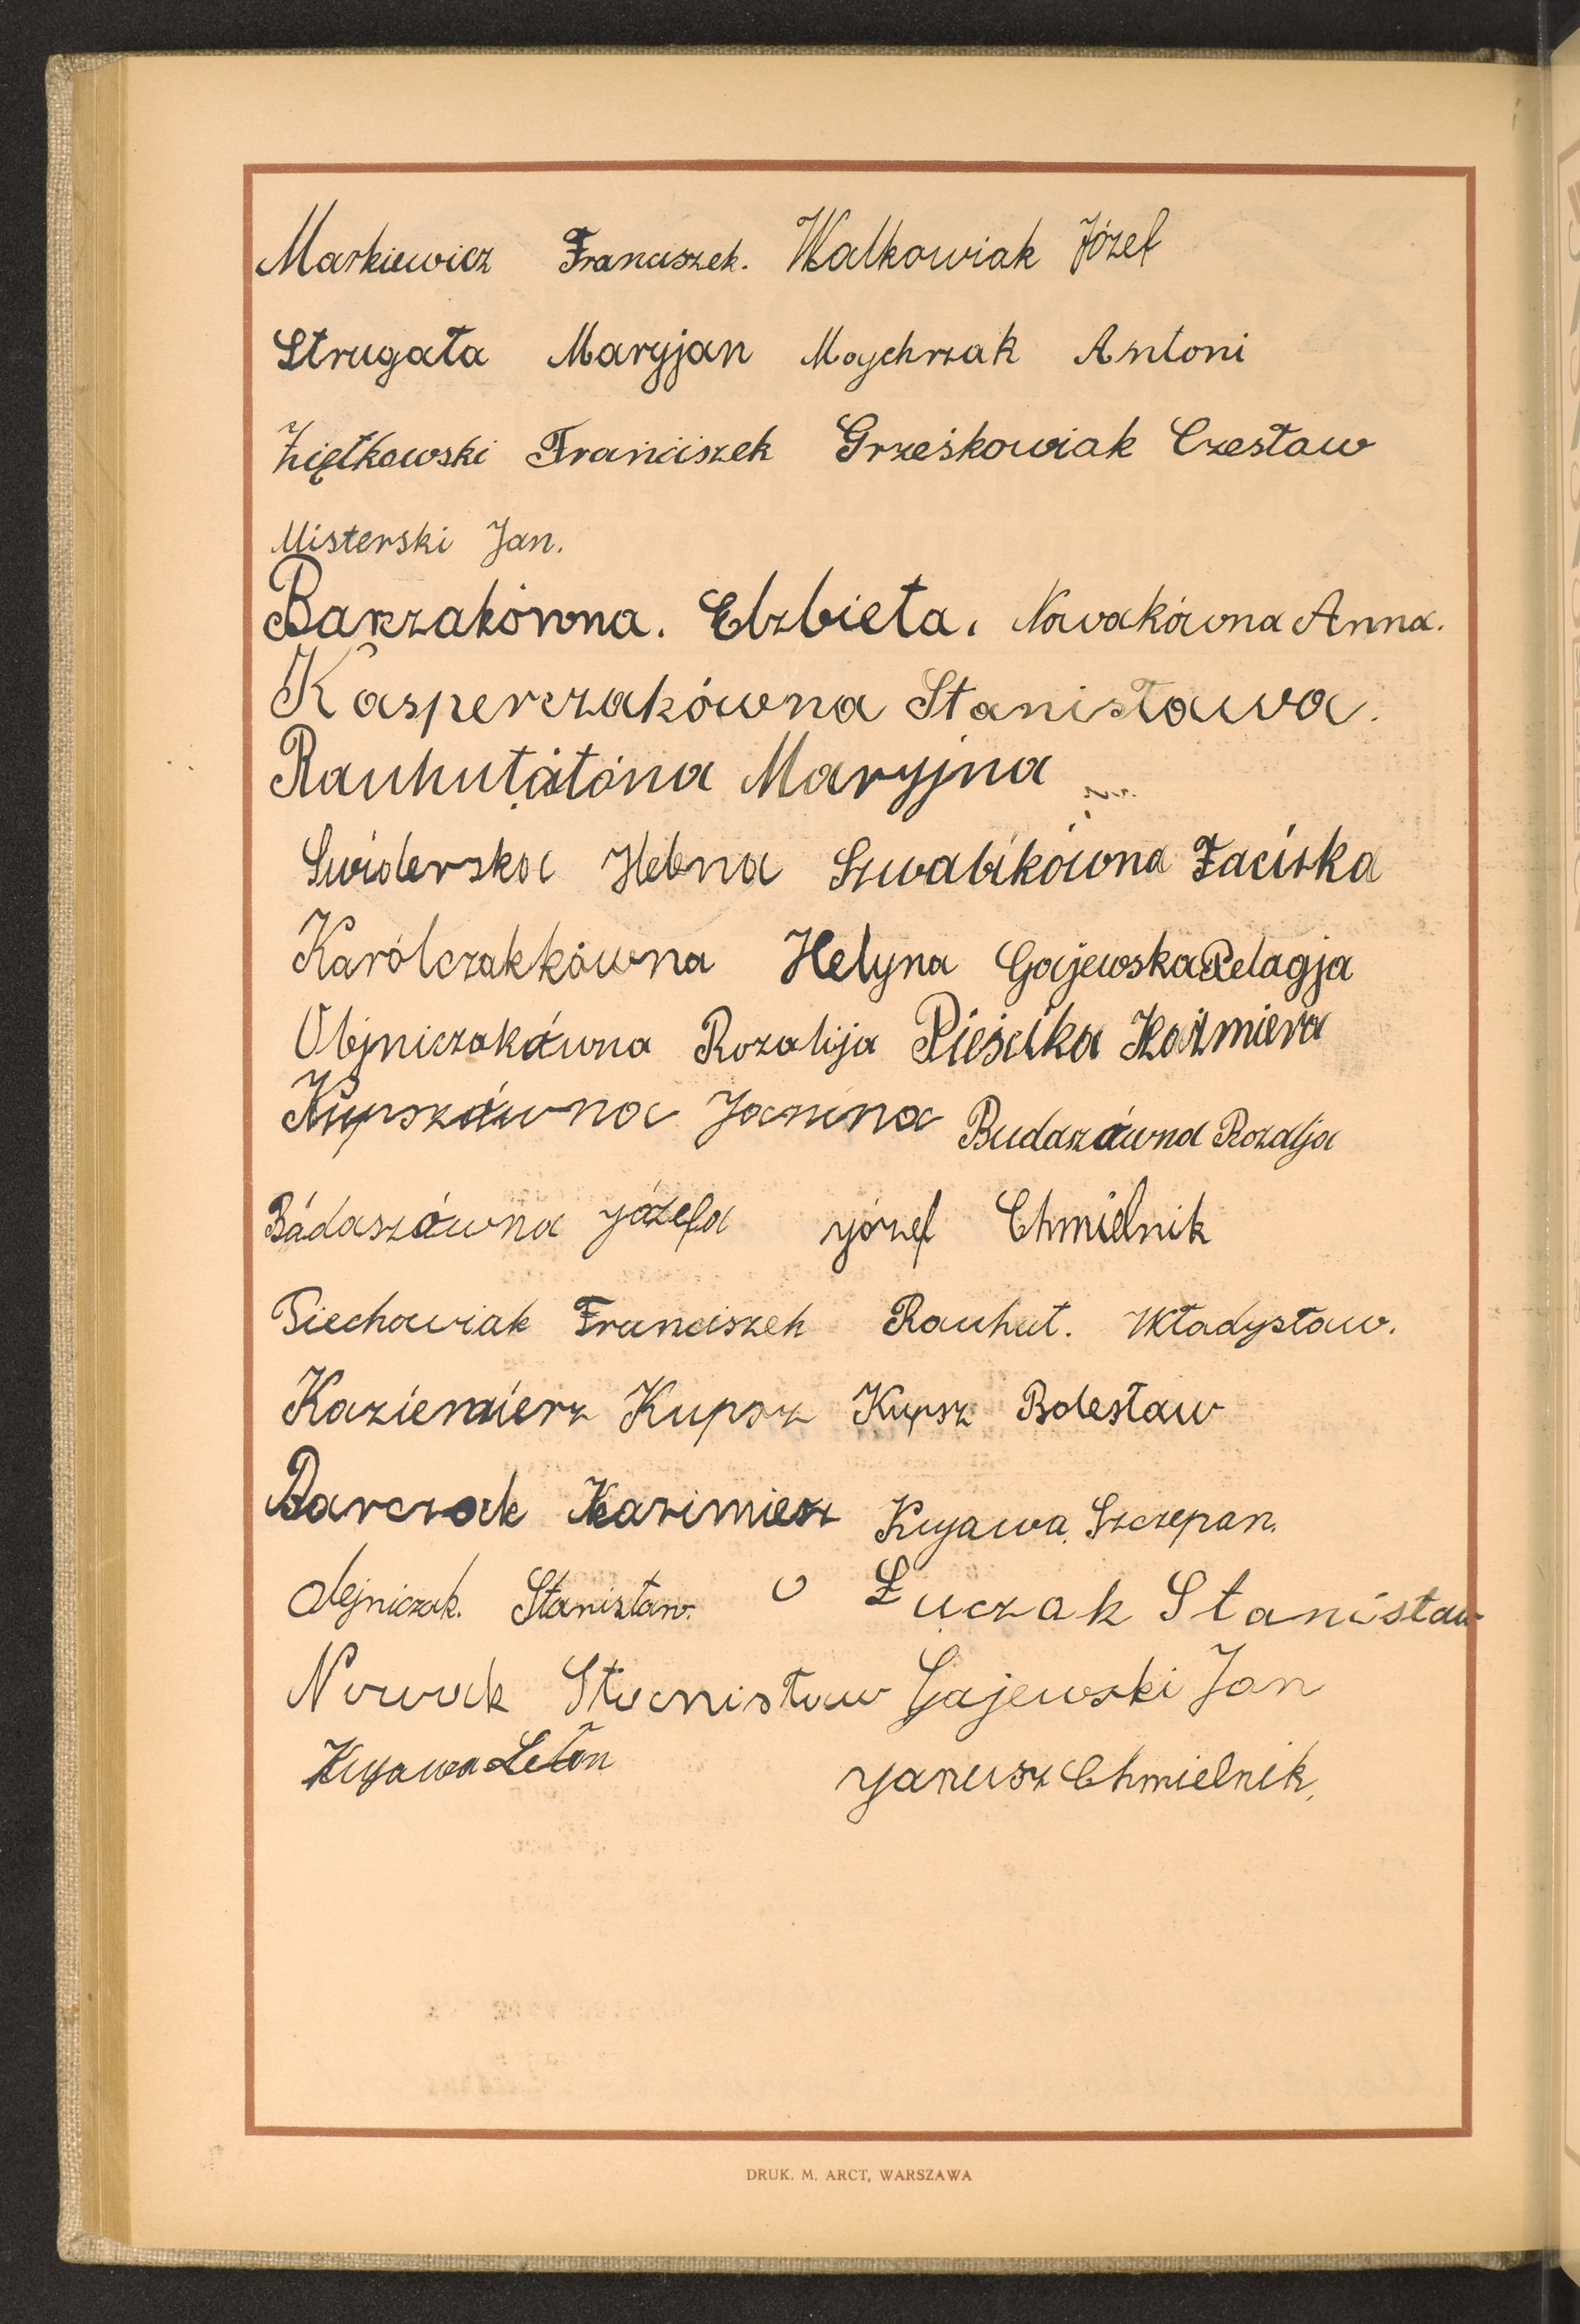 Markiewicz Franciszek. Walkowiak Józef
Strugała Maryjan Moychrzak Antoni
Ziętkowski Franciszek Grześkowiak Czesław
Misterski Jan.
Barzakówna. Elzbieta. Nowakówna Anna.
Kasperczakówna Stanisława.
Rauhutátóna Maryjna
Swiderska Helena Szwabikówna Faciska
Karólczakkówna Helyna Gajewska Pelagja
Olejniczakówna Rozalija Pieścika Kazimiera
Kupszówna Janina Budaszówna Rozalja
Bádaszówna Józefa Józef Chmielnik
Piechowiak Franciszek Rauhut. Władysław.
Kaziemierz Kupsz Kupsz Bolesław
Barczak Kazimierz Kujawa Szczepan.
Olejniczak. Stanisław. Łuczak Stanisław
Nowak Stanisław Gajewski Jan
Kujawa Leon Janusz Chmielnik.
DRUK. M. ARCT, WARSZAWA